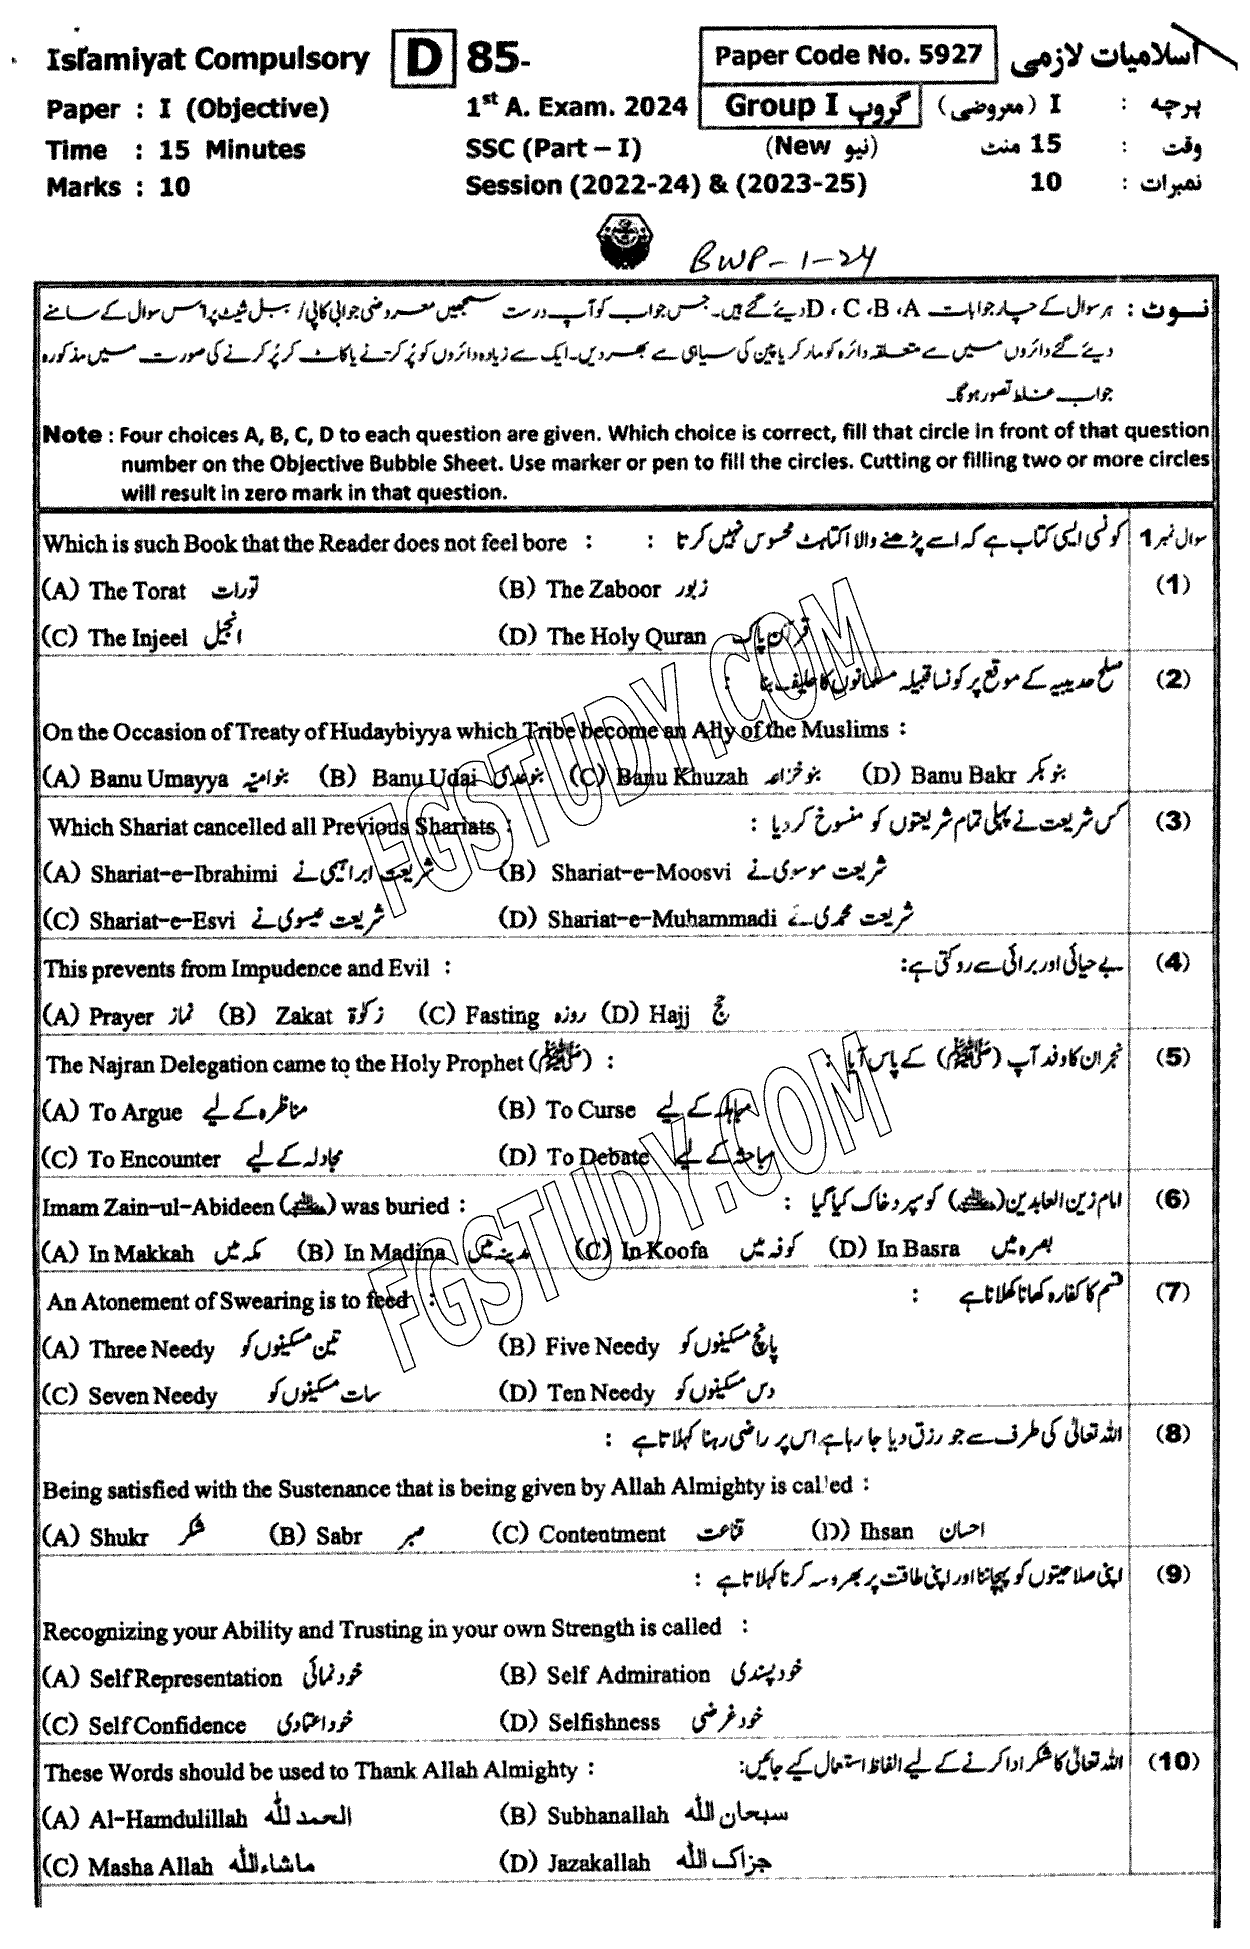 Islamiyat Compulsory D 85- Paper Code No. 5927 اسلامیات لازمی
Paper : I (Objective) 1st A. Exam. 2024 Group I گروپ I (معروضی) پرچہ :
Time : 15 Minutes SSC (Part – I) (New نیو) 15 منٹ وقت :
Marks : 10 Session (2022-24) & (2023-25) 10 نمبرات :
BWP-1-24
نوٹ : ہر سوال کے چار جوابات D ، C ،B ،A دیئے گئے ہیں۔ جس جواب کو آپ درست سمجھیں معروضی جوابی کاپی/ ببل شیٹ پر اس سوال کے سامنے
دیئے گئے دائروں میں سے متعلقہ دائرہ کو مارکر یا پین کی سیاہی سے بھر دیں۔ ایک سے زیادہ دائروں کو پُر کرنے یا کاٹ کر پُر کرنے کی صورت میں مذکورہ
جواب غلط تصور ہوگا۔
Note : Four choices A, B, C, D to each question are given. Which choice is correct, fill that circle in front of that question
number on the Objective Bubble Sheet. Use marker or pen to fill the circles. Cutting or filling two or more circles
will result in zero mark in that question.
Which is such Book that the Reader does not feel bore : کونسی ایسی کتاب ہے کہ اسے پڑھنے والا اکتاہٹ محسوس نہیں کرتا : سوال نمبر 1
(A) The Torat تورات (B) The Zaboor زبور (1)
(C) The Injeel انجیل (D) The Holy Quran قرآن پاک
صلح حدیبیہ کے موقع پر کونسا قبیلہ مسلمانوں کا حلیف بنا : (2)
On the Occasion of Treaty of Hudaybiyya which Tribe become an Ally of the Muslims :
(A) Banu Umayya بنو امیہ (B) Banu Udai بنو عدی (C) Banu Khuzah بنو خزاعہ (D) Banu Bakr بنو بکر
Which Shariat cancelled all Previous Shariats : کس شریعت نے پہلی تمام شریعتوں کو منسوخ کر دیا : (3)
(A) Shariat-e-Ibrahimi شریعت ابراہیمی نے (B) Shariat-e-Moosvi شریعت موسوی نے
(C) Shariat-e-Esvi شریعت عیسوی نے (D) Shariat-e-Muhammadi شریعت محمدی نے
This prevents from Impudence and Evil : بے حیائی اور برائی سے روکتی ہے: (4)
(A) Prayer نماز (B) Zakat زکوٰۃ (C) Fasting روزہ (D) Hajj حج
The Najran Delegation came to the Holy Prophet (ﷺ) : نجران کا وفد آپ (ﷺ) کے پاس آیا : (5)
(A) To Argue مناظرہ کے لیے (B) To Curse مباہلہ کے لیے
(C) To Encounter مجادلہ کے لیے (D) To Debate مباحثہ کے لیے
Imam Zain-ul-Abideen () was buried : امام زین العابدین () کو سپرد خاک کیا گیا : (6)
(A) In Makkah مکہ میں (B) In Madina مدینہ میں (C) In Koofa کوفہ میں (D) In Basra بصرہ میں
An Atonement of Swearing is to feed : قسم کا کفارہ کھانا کھلانا ہے : (7)
(A) Three Needy تین مسکینوں کو (B) Five Needy پانچ مسکینوں کو
(C) Seven Needy سات مسکینوں کو (D) Ten Needy دس مسکینوں کو
اللہ تعالیٰ کی طرف سے جو رزق دیا جا رہا ہے اس پر راضی رہنا کہلاتا ہے : (8)
Being satisfied with the Sustenance that is being given by Allah Almighty is called :
(A) Shukr شکر (B) Sabr صبر (C) Contentment قناعت (D) Ihsan احسان
اپنی صلاحیتوں کو پہچاننا اور اپنی طاقت پر بھروسہ کرنا کہلاتا ہے : (9)
Recognizing your Ability and Trusting in your own Strength is called :
(A) Self Representation خود نمائی (B) Self Admiration خود پسندی
(C) Self Confidence خود اعتمادی (D) Selfishness خود غرضی
These Words should be used to Thank Allah Almighty : اللہ تعالیٰ کا شکر ادا کرنے کے لیے الفاظ استعمال کیے جائیں: (10)
(A) Al-Hamdulillah الحمد للہ (B) Subhanallah سبحان اللہ
(C) Masha Allah ماشاءاللہ (D) Jazakallah جزاک اللہ
FGSTUDY.COM
FGSTUDY.COM